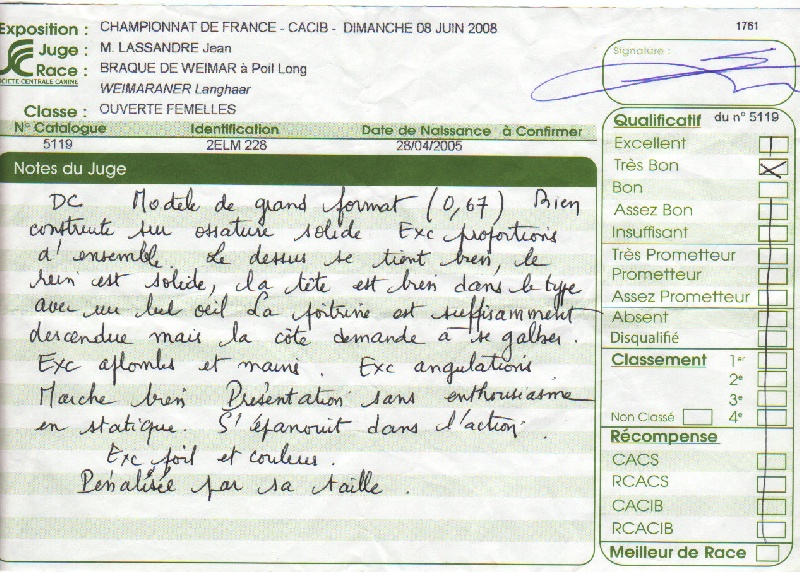 Exposition : CHAMPIONNAT DE FRANCE - CACIB - DIMANCHE 08 JUIN 2008
1761
Juge : M. LASSANDRE Jean
Race : BRAQUE DE WEIMAR à Poil Long
SOCIETE CENTRALE CANINE
WEIMARANER Langhaar
Classe : OUVERTE FEMELLES
Signature :
N° Catalogue Identification Date de Naissance à Confirmer
5119 2ELM 228 28/04/2005
Notes du Juge
DC Modele de grand format (0,67) Bien
construite sur ossature solide Exc proportions
d'ensemble. Le dessus se tient bien, le
rein est solide, la tête est bien dans le type
avec un bel oeil La poitrine est suffisamment
descendue mais la côte demande à se galber.
Exc aplombs et mains. Exc angulations
Marche bien Présentation sans enthousiasme
en statique. S'épanouit dans l'action.
Exc poil et couleur.
Pénalisée par sa taille.
Qualificatif du n° 5119
Excellent
Très Bon
Bon
Assez Bon
Insuffisant
Très Prometteur
Prometteur
Assez Prometteur
Absent
Disqualifié
Classement 1er
2e
3e
Non Classé 4e
Récompense
CACS
RCACS
CACIB
RCACIB
Meilleur de Race